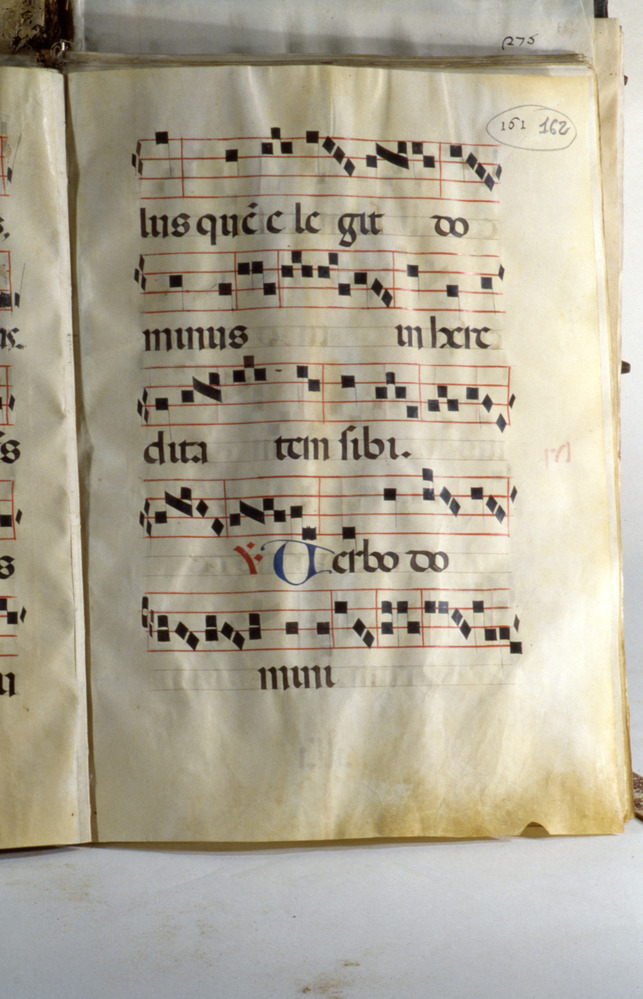 275
151 162
lus quē e le git do
minus in here
dita tem sibi.
℣. Verbo do
mini